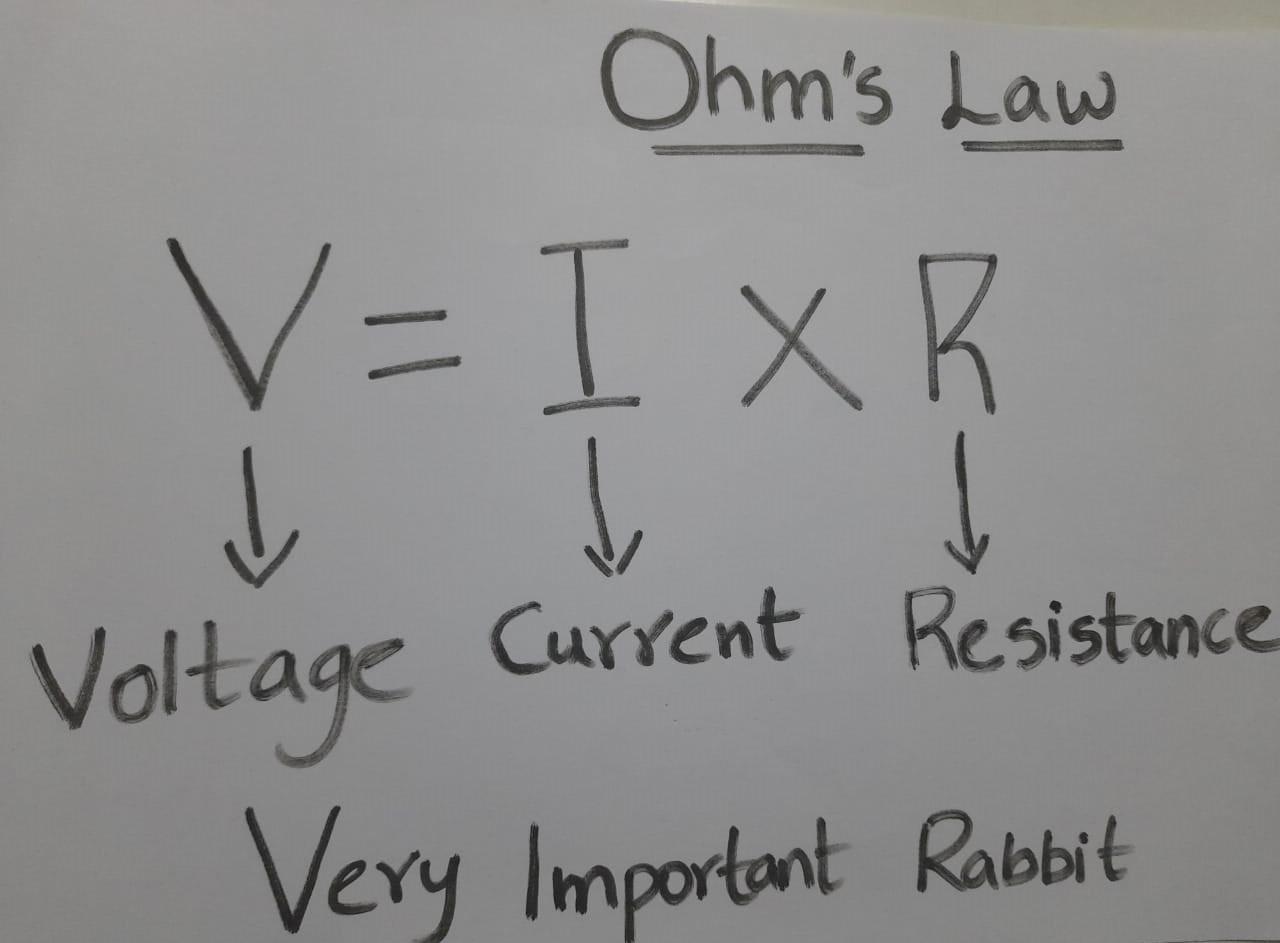 Ohm's Law
V = I X R
Voltage Current Resistance
Very Important Rabbit